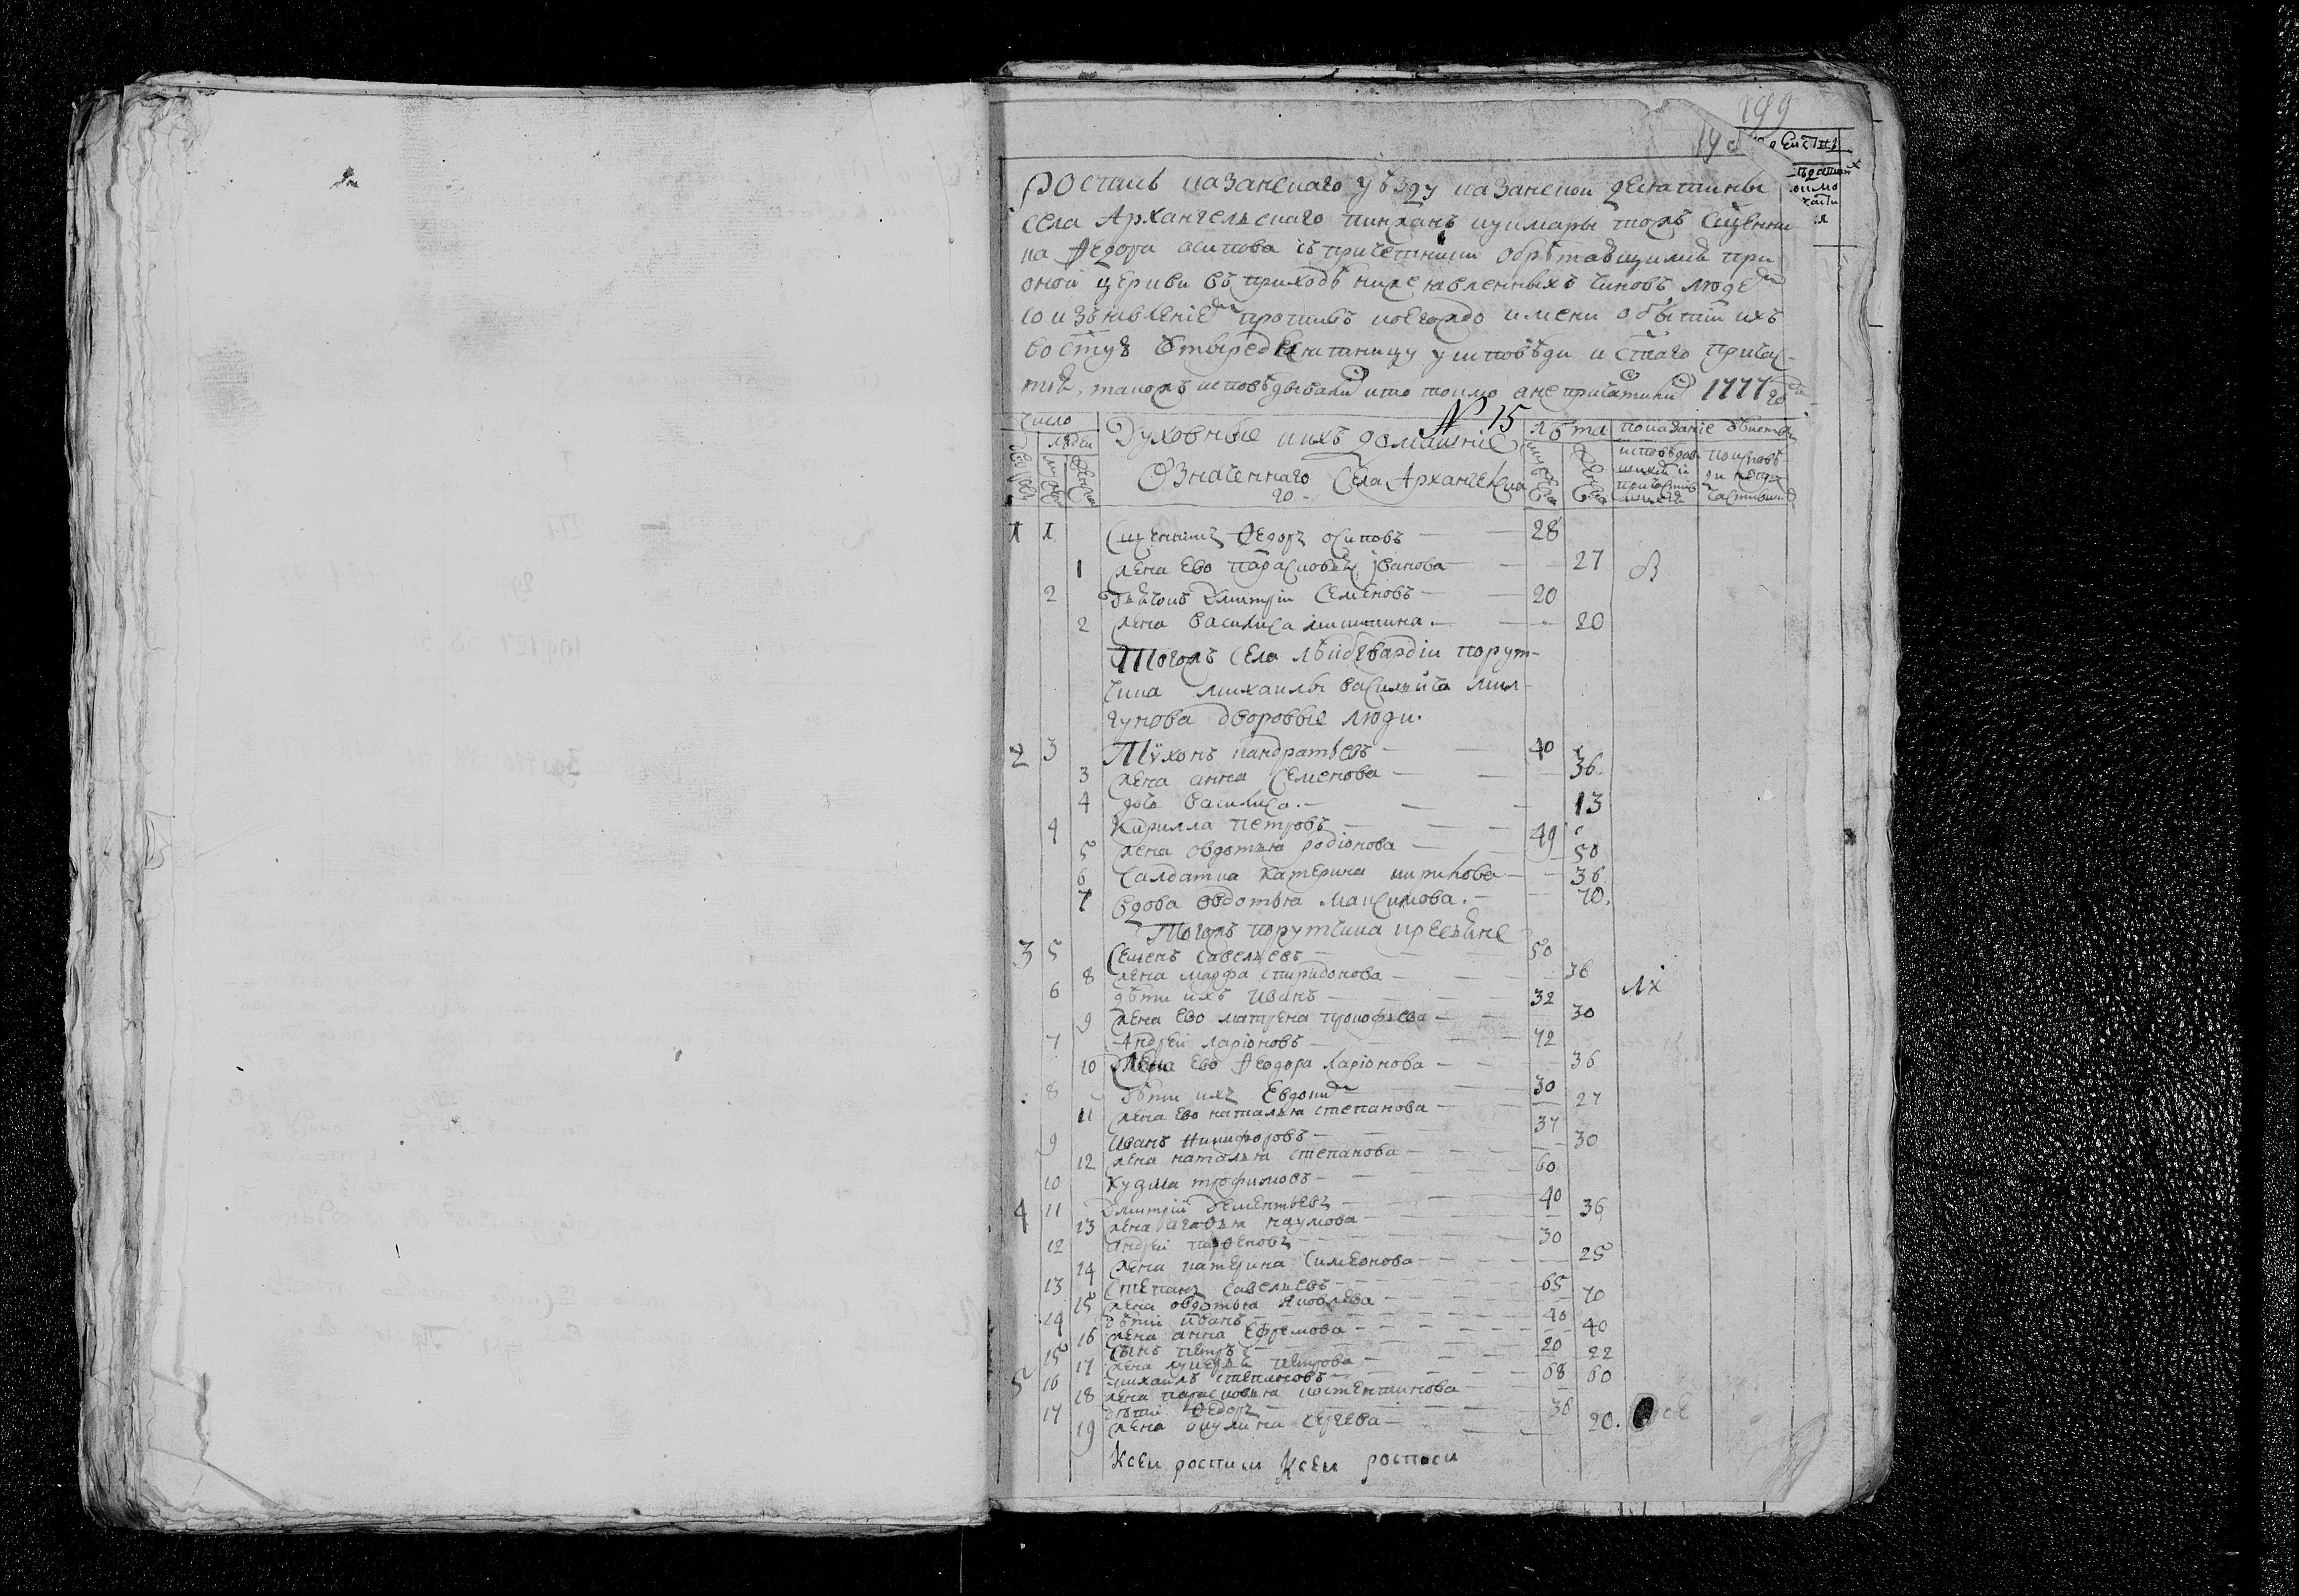 199
Роспись казанскаго уѣзду казанской десятины
села Архангельскаго пинжанъ куимары тожъ сщенни
ка Ѳедора осипова съ причетники обрѣтающимися при
оной церкви въ приходѣ нижеявленныхъ чиновъ людей
со изъявлениемъ противъ коегождо имени о бытии ихъ
во стую четыредесятницу у исповѣди и стаго причас-
тия, такожъ исповѣдывался кто токмо а не причастился 1777 го
№ 15
число
людей
Духовные и ихъ домашние
лѣта
показание бытия
Означеннаго Села Архангельска
го
1 1 Сщенникъ Ѳедоръ осиповъ 28
1 жена ево парасковья ιванова 27
2 дьячокъ дмитрiи Семеновъ 20
2 жена василиса никитина 20
Тогожъ села лѣибгвардiи порут-
чика михаилы васильича мил
гунова дворовые люди.
2 3 Тихонъ кандратьевъ 40
3 жена анна Семенова 36
4 дочь василиса 13
4 Кирилла петровъ 49
5 жена овдотья родiонова 50
6 Салдатка катерина кирилова 36
7 вдова овдотья максимова. 70.
Тогожъ порутчика кресьяне
3 5 Семенъ савельевъ 50
8 жена марфа спиридонова 36
6 дѣти ихъ иванъ 32
9 жена ево матрена прокофьева 30
7 Андреи ларiоновъ 42
10 жена ево Ѳеодора ларiонова 36
8 дѣти ихъ Евдоким 30
11 жена ево наталья степанова 27
9 иванъ никифоровъ 37
12 жена наталья степанова 30
10 Кузма трофимовъ 60
4 11 дмитрiй дементьевъ 40
13 жена агафья наумова 36
12 андреи парфеновъ 30
14 жена катерина симеонова 25
13 Степанъ савельевъ 65
15 жена овдотья яковлева 70
14 дѣти иванъ 40
16 жена анна ефремова 40
15 сынъ петръ 20
17 жена лукерья петрова 22
5 16 михаилъ степановъ 68
18 жена парасковья костентинова 60
17 дѣти Ѳедоръ 36
19 жена акулина сергева 20.
Ксеи росписи Ксеи росписи